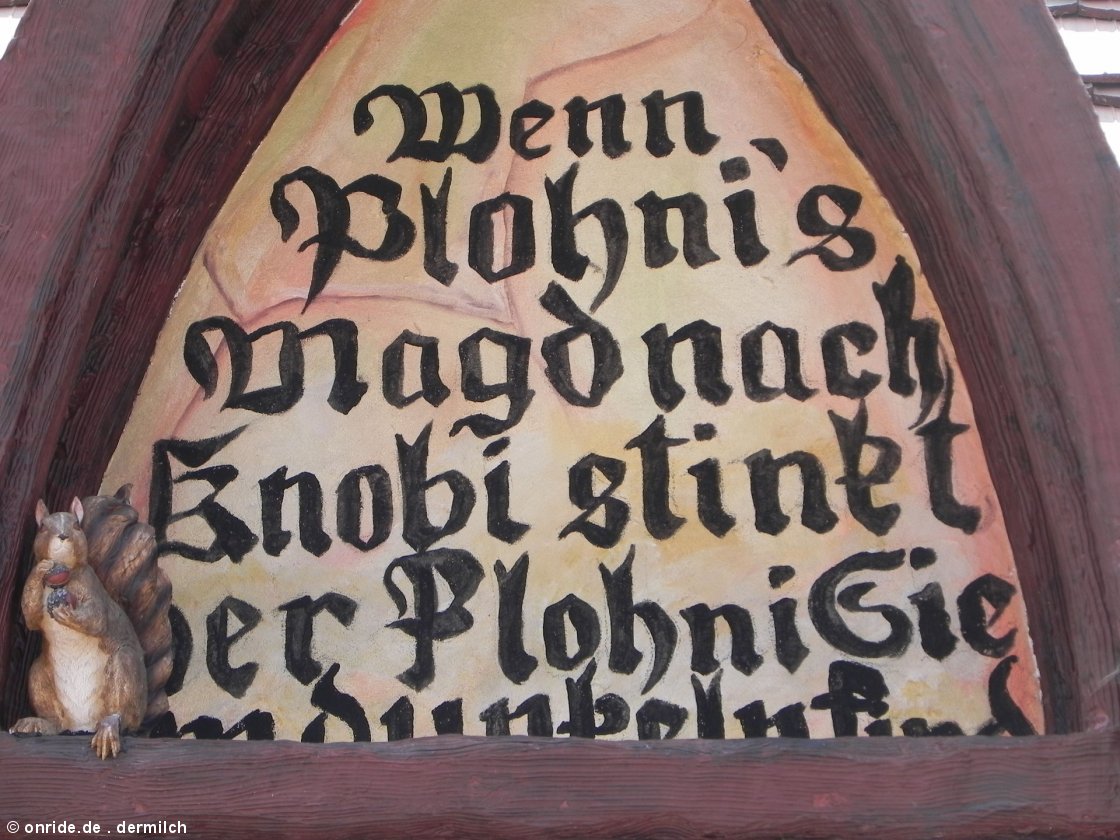 Wenn
Plohni's
Magd nach
Knobi stinkt
der Plohni Sie
im dunkeln find
© onride.de . dermilch